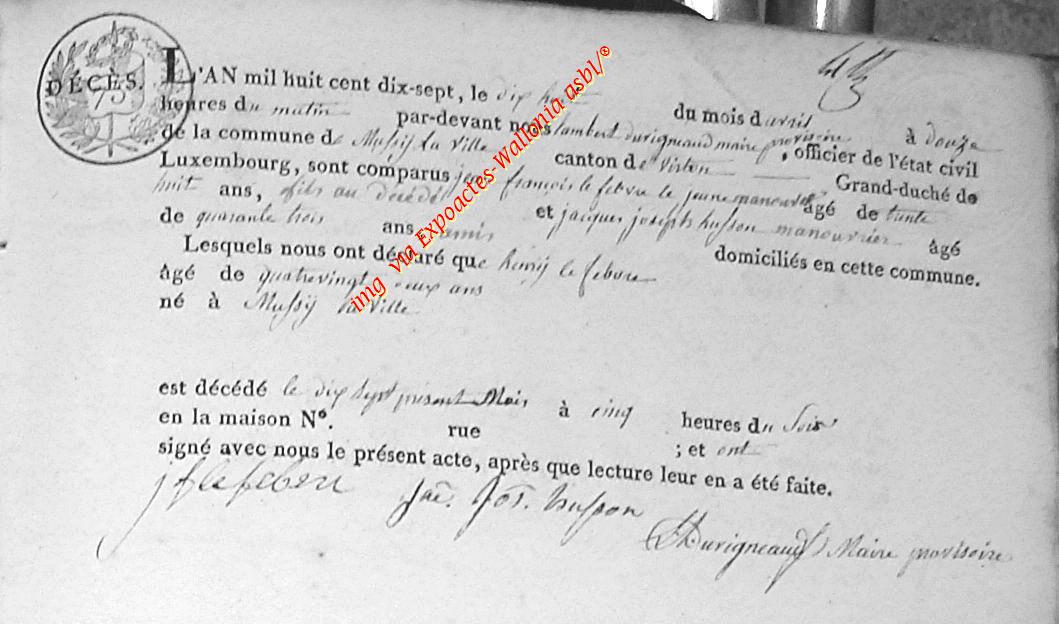 DÉCÈS.
L'AN mil huit cent dix-sept, le dix huit du mois d'avril à douze
heures du matin par-devant nous lambert durigneaud maire provisoire, officier de l'état civil
de la commune de Mussÿ la ville canton de virton Grand-duché de
Luxembourg, sont comparus jean françois lefebvre le jeune manouvrier âgé de trente
huit ans, fils au décédé et jacques joseph husson manouvrier âgé
de quarante trois ans, amis domiciliés en cette commune.
Lesquels nous ont déclaré que henrÿ lefebvre
âgé de quatrevingt deux ans
né à Mussÿ la ville
est décédé le dix sept présent Mois à cinq heures du Soir
en la maison N°. rue ; et ont
signé avec nous le présent acte, après que lecture leur en a été faite.
jf lefeberr Jac. Jos. husson
Durigneaud Maire provisoire
img via Expoactes-Wallonia asbl/©